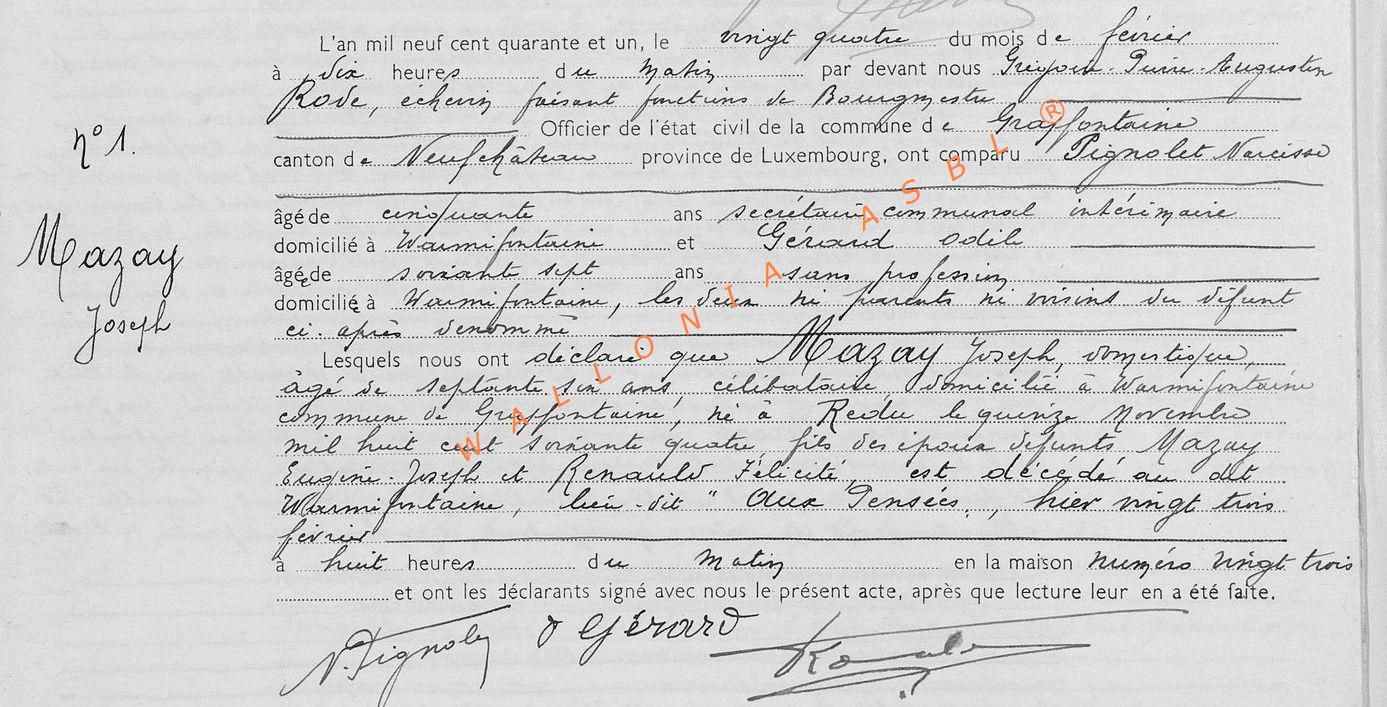 L'an mil neuf cent quarante et un, le vingt quatre du mois de février
à dix heures du matin par devant nous Grégoire-Puin-Augustin
Rode, échevin faisant fonctions de Bourgmestre
n° 1. Officier de l'état civil de la commune de Grapfontaine
canton de Neufchâteau province de Luxembourg, ont comparu Pignolet Narcisse
âgé de cinquante ans secrétaire communal intérimaire
domicilié à Warmifontaine et Gérard Odile
âgée de soixante sept ans sans profession
domiciliée à Warmifontaine, les deux ni parents ni voisins du défunt
ci-après dénommé
Mazay
Joseph
Lesquels nous ont déclaré que Mazay Joseph, domestique,
âgé de septante six ans, célibataire domicilié à Warmifontaine
commune de Grapfontaine, né à Redu le quinze novembre
mil huit cent soixante quatre, fils des époux défunts Mazay
Eugène-Joseph et Renauld Félicité, est décédé au dit
Warmifontaine, lieu-dit "Aux Pensées", hier vingt trois
février
à huit heures du matin en la maison numéro vingt trois
et ont les déclarants signé avec nous le présent acte, après que lecture leur en a été faite.
N. Pignolet O Gérard
WALLONIA ASBL ®